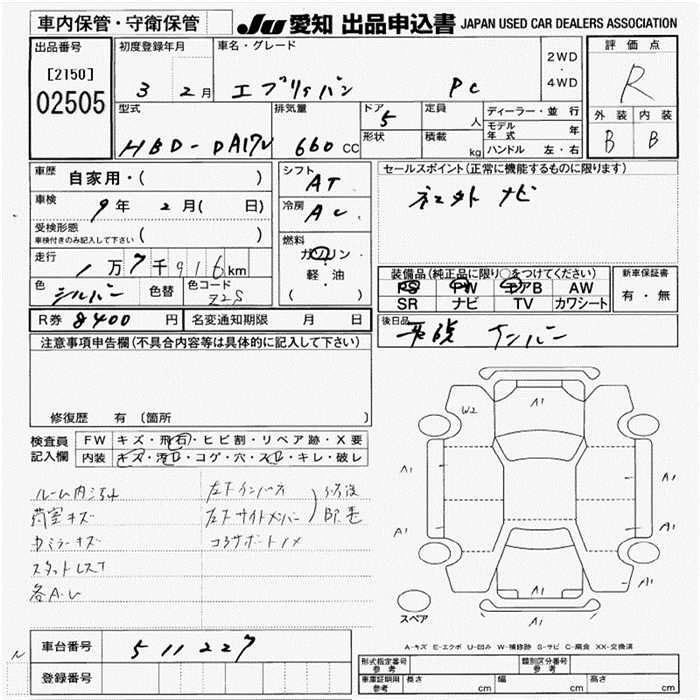 車内保管・守衛保管
JU 愛知 出品申込書 JAPAN USED CAR DEALERS ASSOCIATION
出品番号
[2150]
02505
初度登録年月
3 2月
車名・グレード
エブリィバン PC
2WD
・
4WD
評価点
R
外装 内装
B B
型式
HBD-DA17V
排気量
660cc
ドア 5
形状
定員 人
積載 kg
ディーラー・並行
モデル年式 年
ハンドル 左・右
車歴 自家用・( )
車検 9年 2月( 日)
受検形態
車検付きのみ記入して下さい ( )
走行
1万7千916km
色 シルバー 色替
色コード
Z2S
シフト
AT
冷房
AC
燃料
ガソリン
・
軽・油
( )
セールスポイント(正常に機能するものに限ります)
社外 ナビ
装備品(純正品に限り○をつけてください)
PS PW エアB AW
SR ナビ TV カワシート
新車保証書
有・無
R券 8400円 名変通知期限 月 日
後日品
注意事項申告欄(不具合内容等は具体的に記入して下さい)
修復歴 有(箇所 )
検査員
記入欄
FW キズ・飛石・ヒビ割・リペア跡・X要
内装 キズ・汚レ・コゲ・穴・スレ・キレ・破レ
ルーム内
荷室キズ
スタットレス
各A・U
左下インパネ
左下サイドメンバー
コアサポート
修復
W2
A1
A1
A1
A1
A1
A1
A1
A1
スペア
A-キズ E-エクボ U-凹み W-補修跡 S-サビ C-腐食 XX-交換済
車台番号 511227
登録番号
型式指定番号
参考
類別区分番号
参考
車庫証明用
参考
長さ cm 幅 cm 高さ cm